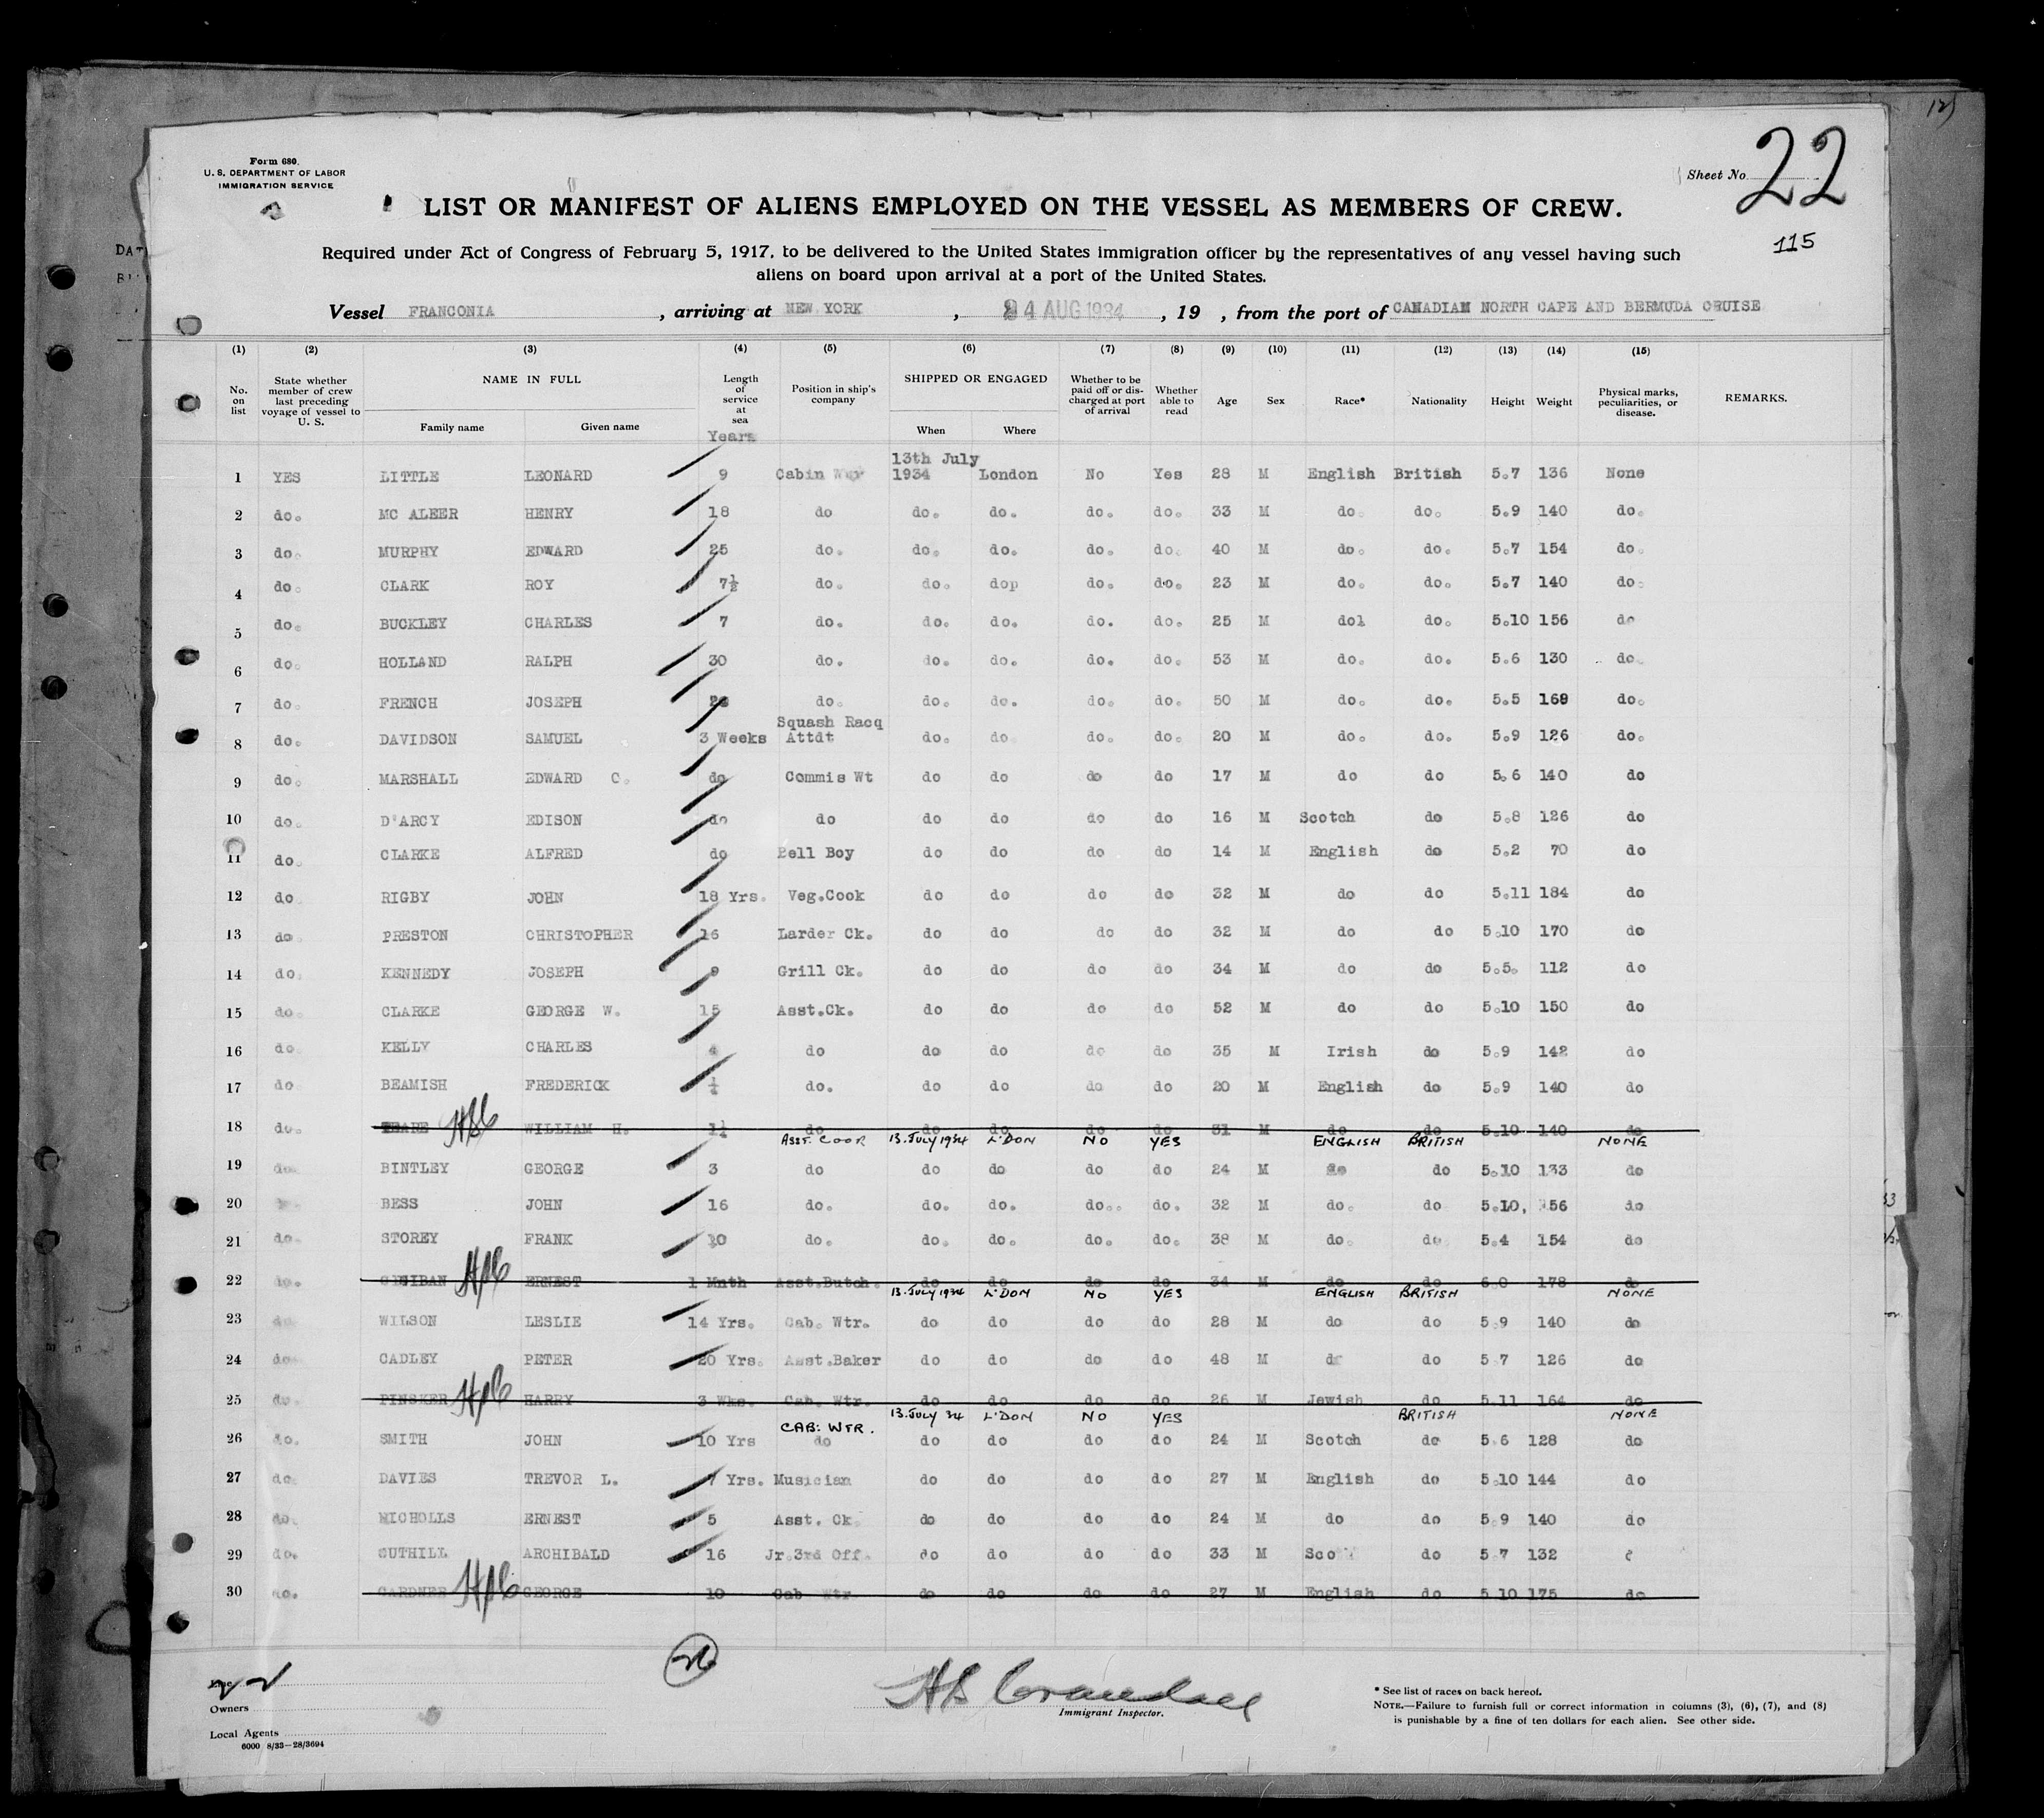 Form 680.
U. S. DEPARTMENT OF LABOR
IMMIGRATION SERVICE
Sheet No. 22
115
LIST OR MANIFEST OF ALIENS EMPLOYED ON THE VESSEL AS MEMBERS OF CREW.
Required under Act of Congress of February 5, 1917, to be delivered to the United States immigration officer by the representatives of any vessel having such
aliens on board upon arrival at a port of the United States.
Vessel FRANCONIA , arriving at NEW YORK , 24 AUG 1934 , 19 , from the port of CANADIAN NORTH CAPE AND BERMUDA CRUISE
(1) (2) (3) (4) (5) (6) (7) (8) (9) (10) (11) (12) (13) (14) (15)
No. on list State whether member of crew last preceding voyage of vessel to U. S. NAME IN FULL Family name Given name Length of service at sea Years Position in ship's company SHIPPED OR ENGAGED When Where Whether to be paid off or discharged at port of arrival Whether able to read Age Sex Race* Nationality Height Weight Physical marks, peculiarities, or disease. REMARKS.
13th July
1 YES LITTLE LEONARD 9 Cabin 1934 London No Yes 28 M English British 5.7 136 None
2 do. MC ALEER HENRY 18 do do. do. do. do. 33 M do. do. 5.9 140 do.
3 do. MURPHY EDWARD 25 do. do. do. do. do. 40 M do. do. 5.7 154 do.
4 do. CLARK ROY 7½ do. do. dop do. do. 23 M do. do. 5.7 140 do.
5 do. BUCKLEY CHARLES 7 do. do. do. do. do. 25 M dol do. 5.10 156 do
6 do. HOLLAND RALPH 30 do. do. do. do. do. 53 M do. do. 5.6 130 do.
7 do. FRENCH JOSEPH do. do. do. do. do. 50 M do. do. 5.5 168 do.
Squash Racq
8 do. DAVIDSON SAMUEL 3 Weeks Attdt do. do do. do. 20 M do. do. 5.9 126 do.
9 do. MARSHALL EDWARD C. do Commis Wt do do do do 17 M do do 5.6 140 do
10 do. D'ARCY EDISON do do do do do do 16 M Scotch do 5.8 126 do
11 do. CLARKE ALFRED do Bell Boy do do do do 14 M English do 5.2 70 do
12 do RIGBY JOHN 18 Yrs. Veg.Cook do do do do 32 M do do 5.11 184 do
13 do. PRESTON CHRISTOPHER 16 Larder Ck. do do do do 32 M do do 5.10 170 do
14 do. KENNEDY JOSEPH 9 Grill Ck. do do do do 34 M do do 5.5. 112 do
15 do. CLARKE GEORGE W. 15 Asst.Ck. do do do do 52 M do do 5.10 150 do
16 do KELLY CHARLES 4 do do do do do 35 M Irish do 5.9 142 do
17 do BEAMISH FREDERICK do. do do do do 20 M English do 5.9 140 do
18 do. TEARE WILLIAM H. do do do do do 31 M do do 5.10 140 do
ASST. COOK 13.JULY 1934 L'DON NO YES ENGLISH BRITISH NONE
19 do BINTLEY GEORGE 3 do do do do do 24 M do do 5.10 133 do
20 BESS JOHN 16 do. do. do. do.. do. 32 M do. do 5.10, 156 do
21 do. STOREY FRANK do. do. do. do. do. 38 M do. do 5.4 154 do
22 do. ERNEST 1 Mnth Asst.Butch. do do do do 34 M do do 6.0 178 do
13.JULY 1934 L'DON NO YES ENGLISH BRITISH NONE
23 do WILSON LESLIE 14 Yrs. Cab. Wtr. do do do do 28 M do do 5.9 140 do
24 do CADLEY PETER 20 Yrs. Asst.Baker do do do do 48 M do do 5.7 126 do
25 do. PINSKER HARRY 3 Wks. Cab. Wtr. do do do do 26 M Jewish do 5.11 164 do
CAB: WTR. 13.JULY 34 L'DON NO YES BRITISH NONE
26 do. SMITH JOHN 10 Yrs do do do do do 24 M Scotch do 5.6 128 do
27 do. DAVIES TREVOR L. 7 Yrs. Musician do do do do 27 M English do 5.10 144 do
28 do. NICHOLLS ERNEST 5 Asst. Ck. do do do do 24 M do do 5.9 140 do
29 do. CUTHILL ARCHIBALD 16 Jr.3rd Off. do do do do 33 M do 5.7 132
30 do. GARDNER GEORGE 10 Cab Wtr do do do do 27 M English do 5.10 175 do
26
Owners
Local Agents
6000 8/33—28/3694
Immigrant Inspector.
* See list of races on back hereof.
NOTE.—Failure to furnish full or correct information in columns (3), (6), (7), and (8)
is punishable by a fine of ten dollars for each alien. See other side.